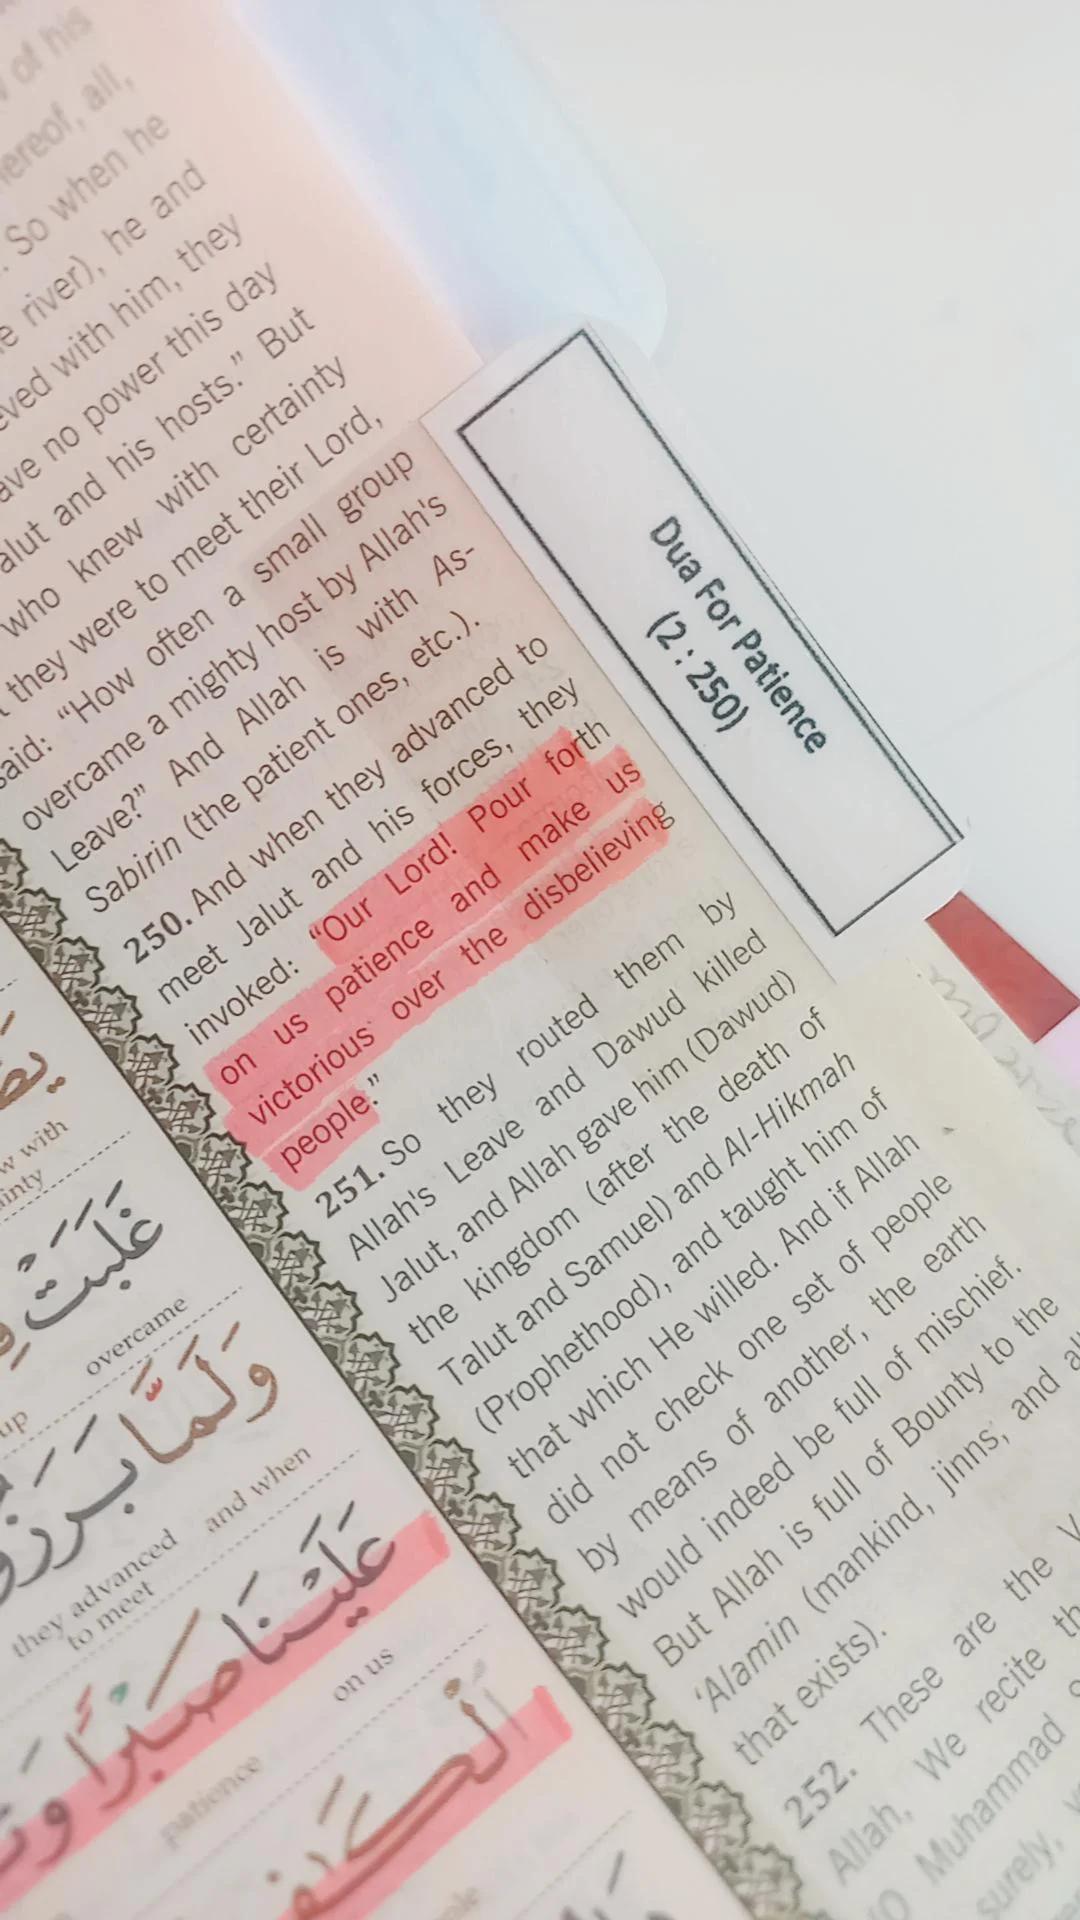 of his
hereof, all,
So when he
river), he and
with him, they
no power this day
and his hosts." But
who knew with certainty
they were to meet their Lord,
said: "How often a small group
overcame a mighty host by Allah's
Leave?" And Allah is with As-
Sabirin (the patient ones, etc.).
250. And when they advanced to
meet Jalut and his forces, they
invoked: "Our Lord! Pour forth
on us patience and make us
victorious over the disbelieving
people."
251. So they routed them by
Allah's Leave and Dawud killed
Jalut, and Allah gave him (Dawud)
the kingdom (after the death of
Talut and Samuel) and Al-Hikmah
(Prophethood), and taught him of
that which He willed. And if Allah
did not check one set of people
by means of another, the earth
would indeed be full of mischief.
But Allah is full of Bounty to the
'Alamin (mankind, jinns, and
that exists).
252. These are the
Allah, We recite
Muhammad
surely,
Dua For Patience
(2 : 250)
with
غَلَبَتْ
overcame
up
وَلَمَّا
and when
they advanced
to meet
عَلَيْنَا صَبْرًا
on us
patience